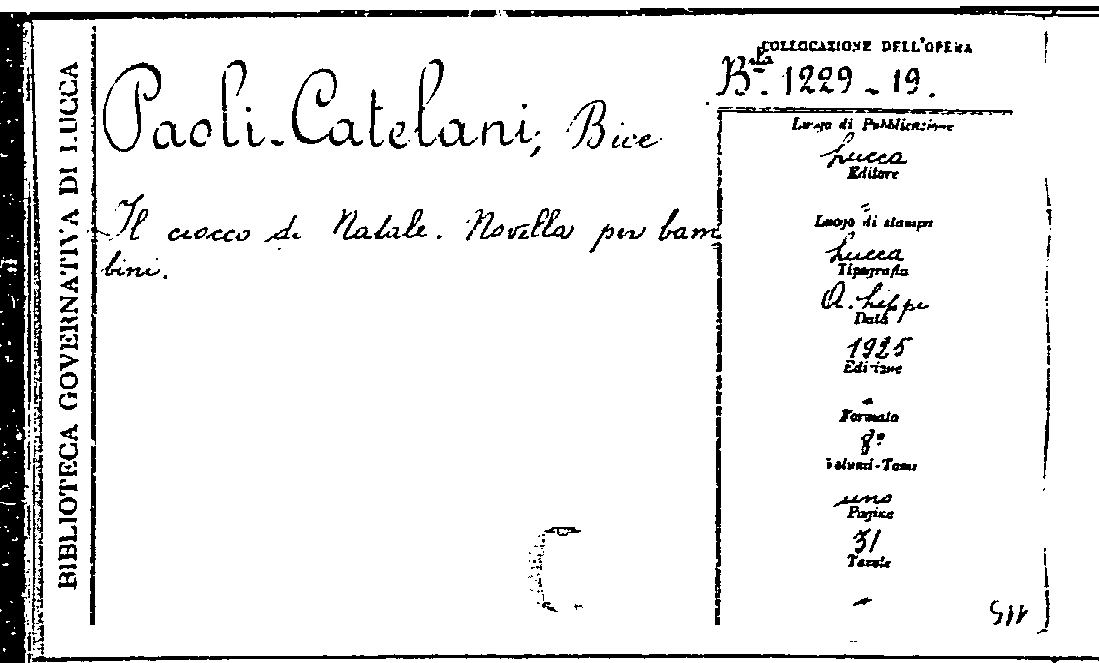 BIBLIOTECA GOVERNATIVA DI LUCCA
COLLOCAZIONE DELL'OPERA
Bta. 1229 - 19.
Paoli-Catelani, Bice
Il ciocco di Natale. Novella per bam
bini.
Luogo di Pubblicazione
Lucca
Editore
-
Luogo di stampa
Lucca
Tipografia
A. Lippi
Data
1925
Edizione
-
Formato
8º
Volumi-Tomi
uno
Pagine
31
Tavole
-